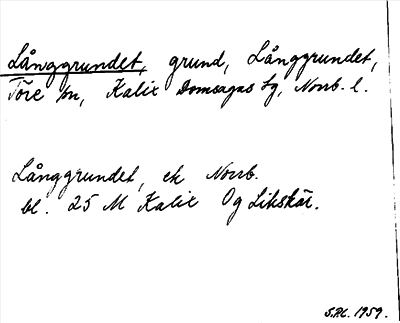 Långgrundet, grund, Långgrundet,
Töre sn, Kalix Domsagas tg, Norrb. l.
Långgrundet, ek Norrb.
bl. 25 M Kalix Og Likskär.
S.P.L. 1959.